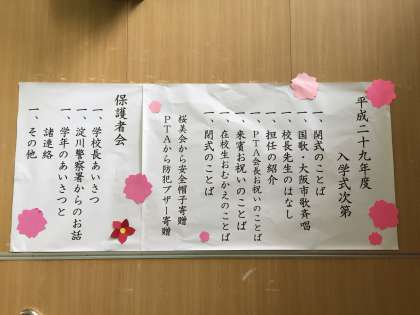 平成二十九年度
入学式次第
一、開式のことば
一、国歌・大阪市歌斉唱
一、校長先生のはなし
一、担任の紹介
一、PTA会長お祝いのことば
一、来賓お祝いのことば
一、在校生おむかえのことば
一、閉式のことば
桜美会から安全帽子寄贈
PTAから防犯ブザー寄贈
保護者会
一、学校長あいさつ
一、淀川警察署からのお話
一、学年のあいさつと
諸連絡
一、その他